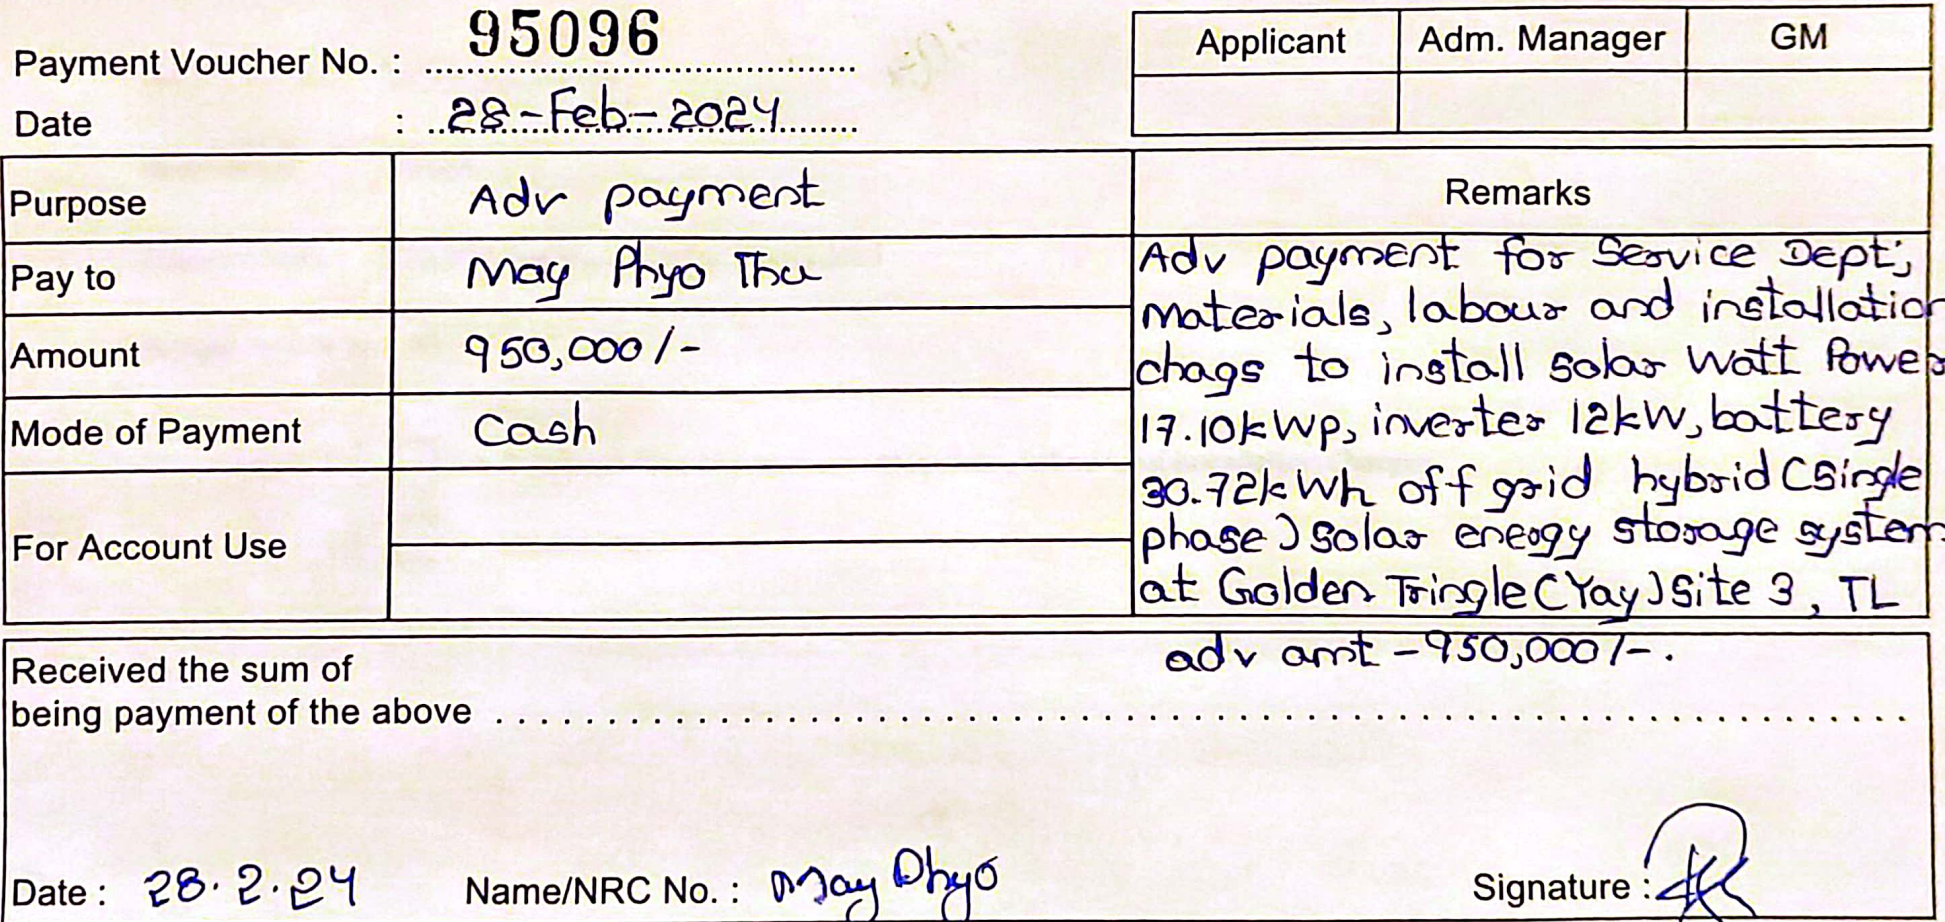 Payment Voucher No. : 95096
Applicant Adm. Manager GM
Date : 28-Feb-2024
Purpose Adv payment
Remarks
Pay to May Phyo Thu
Amount 950,000/-
Mode of Payment Cash
For Account Use
Adv payment for Service Dept;
materials, labour and installation
chags to install solar watt Power
17.10kWp, inverter 12kW, battery
30.72kWh off grid hybrid (Single
phase) Solar energy storage system
at Golden Tringle (Yay) Site 3, TL
adv amt - 950,000/-.
Received the sum of
being payment of the above
Date : 28.2.24 Name/NRC No. : May Phyo Signature :